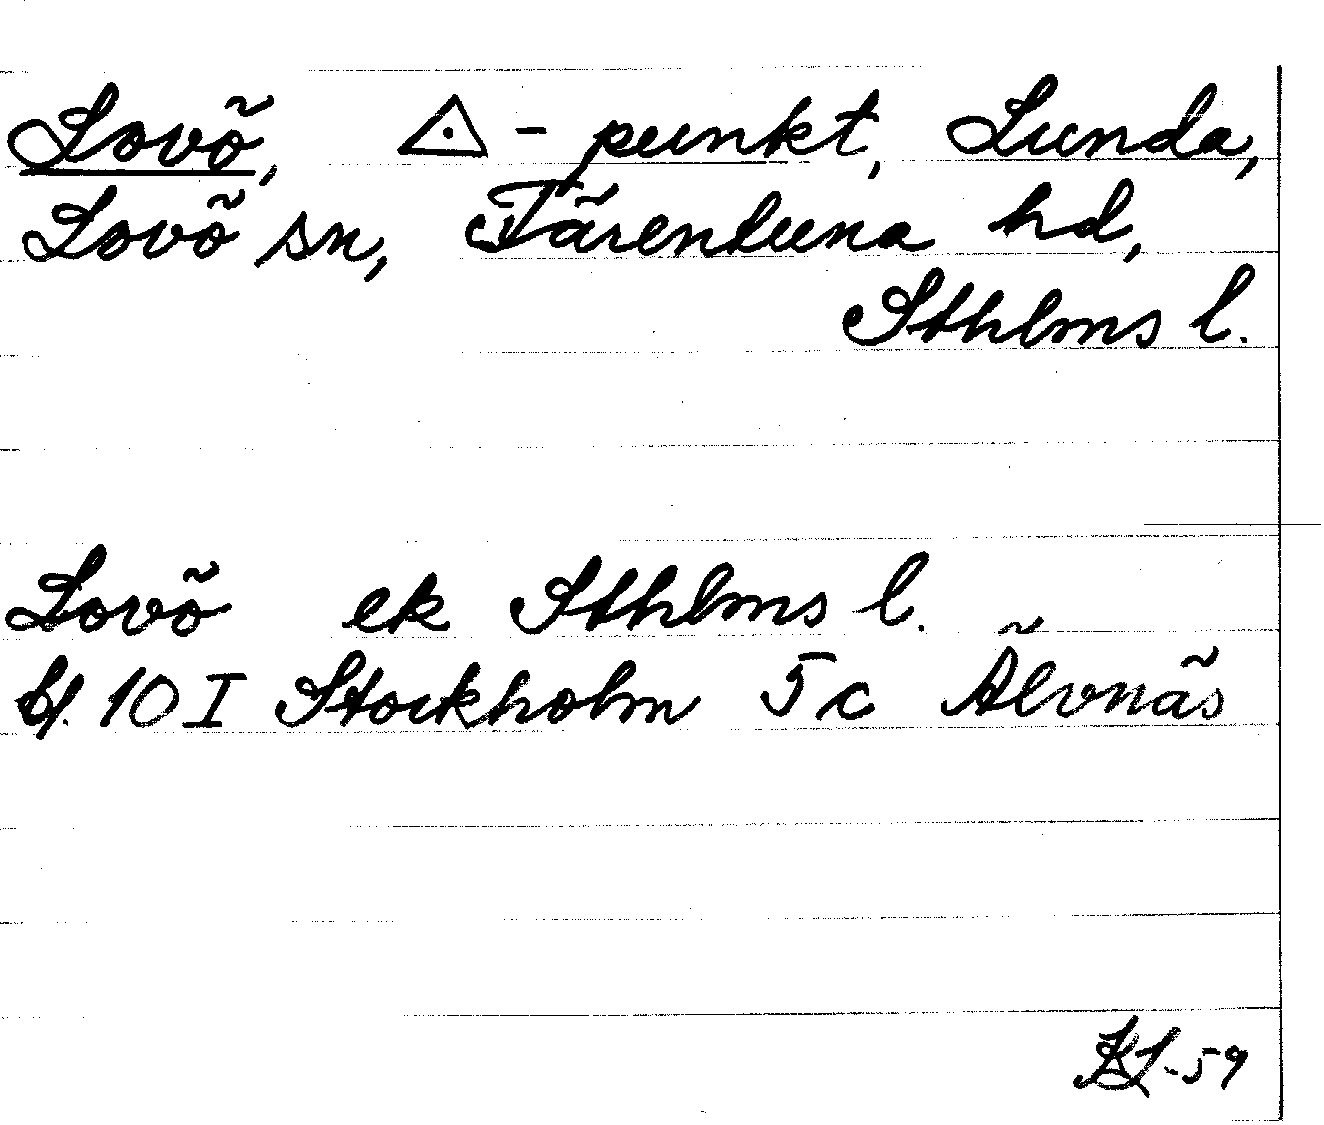 Lovö, △ - punkt, Lunda,
Lovö sn, Färentuna hd,
Sthlms l.
Lovö ek Sthlms l.
bl. 10 I Stockholm 5c Älvnäs
KL-59